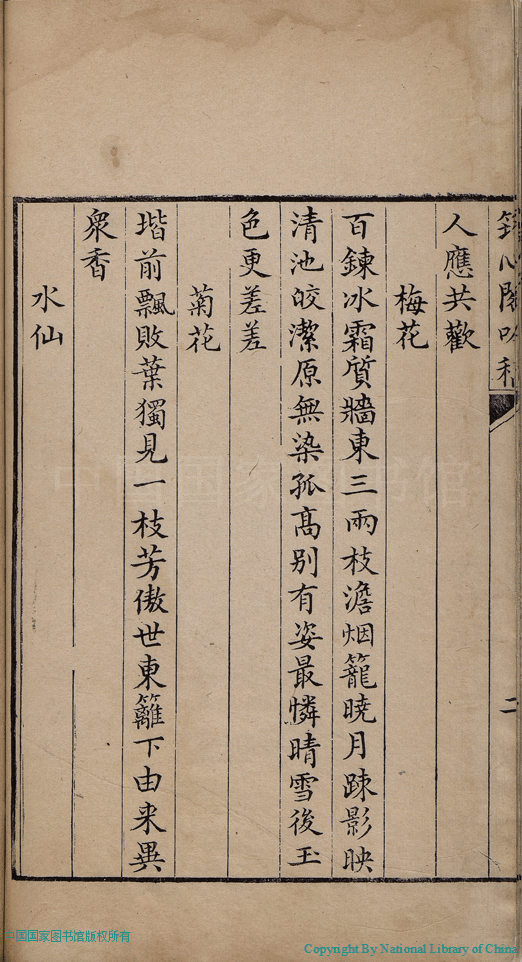 人應共歡
梅花
百鍊冰霜質牆東三兩枝澹烟籠曉月踈影映
清池皎潔原無染孤高别有姿最憐晴雪後玉
色更差差
菊花
堦前飄敗葉獨見一枝芳傲世東籬下由来異
衆香
水仙
二
中国国家图书馆
中国国家图书馆版权所有
Copyright By National Library of China